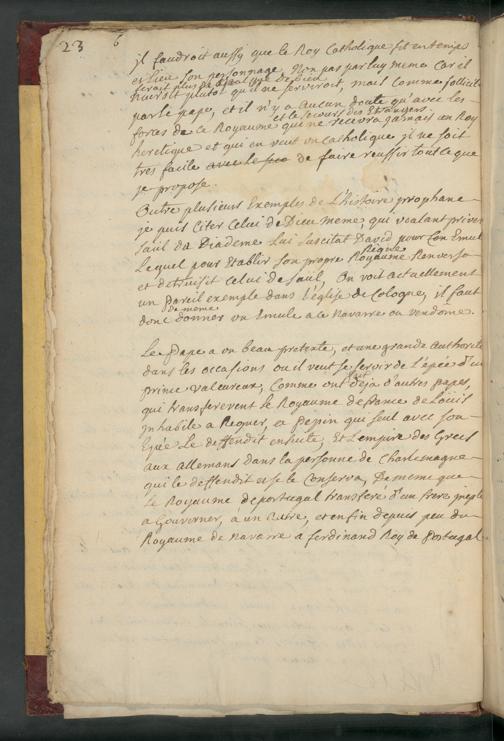 23 6
jl faudroit aussy que le Roy Catholique fit en temps
et Lieu son personnage, Non pas par luy meme Car il
feroit plus de mal que de bien
nuiroit plutot qu'il ne serviroit, mais Comme sollicité
par le pape, et il n'y a aucun doute qu'avec les
et le secours des Etrangers
forces de ce Royaume qui ne recevra jamais un Roy
heretique et qui en veut un Catholique jl ne soit
tres facile avec le de faire reussir tout ce que
je propose.
Outre plusieurs Exemples de L'histoire prophane
je puis Citer Celui de Dieu meme, qui voulant priver
Saül du Diademe Lui suscitat David pour Son Emule
Regne
Lequel pour Etablir son propre Royaume Renversa
et detruisit Celui de Saul. On voit actuellement
un pareil exemple dans l'église de Cologne, il faut
De meme
donc donner un Emule a ce Navarre ou vendome.
Le Pape a un beau pretexte, et une grande authorité
dans les occasions ou il veut se servir de L'épée d'un
fait
prince valeureux, Comme ont deja d'autres papes,
qui transfererent le Royaume de france de Louis
inhabile a Regner, a pepin qui seul avec son
Epée le deffendit ensuite, Et L'empire des Grecs
aux allemans dans la personne de Charlemagne
qui le deffendit et se le Conserva, De meme que
le Royaume de portugal transferé d'un frere inepte
a Gouverner, à un Autre, et enfin depuis peu du
Royaume de Navarre a ferdinand Roy de Portugal.